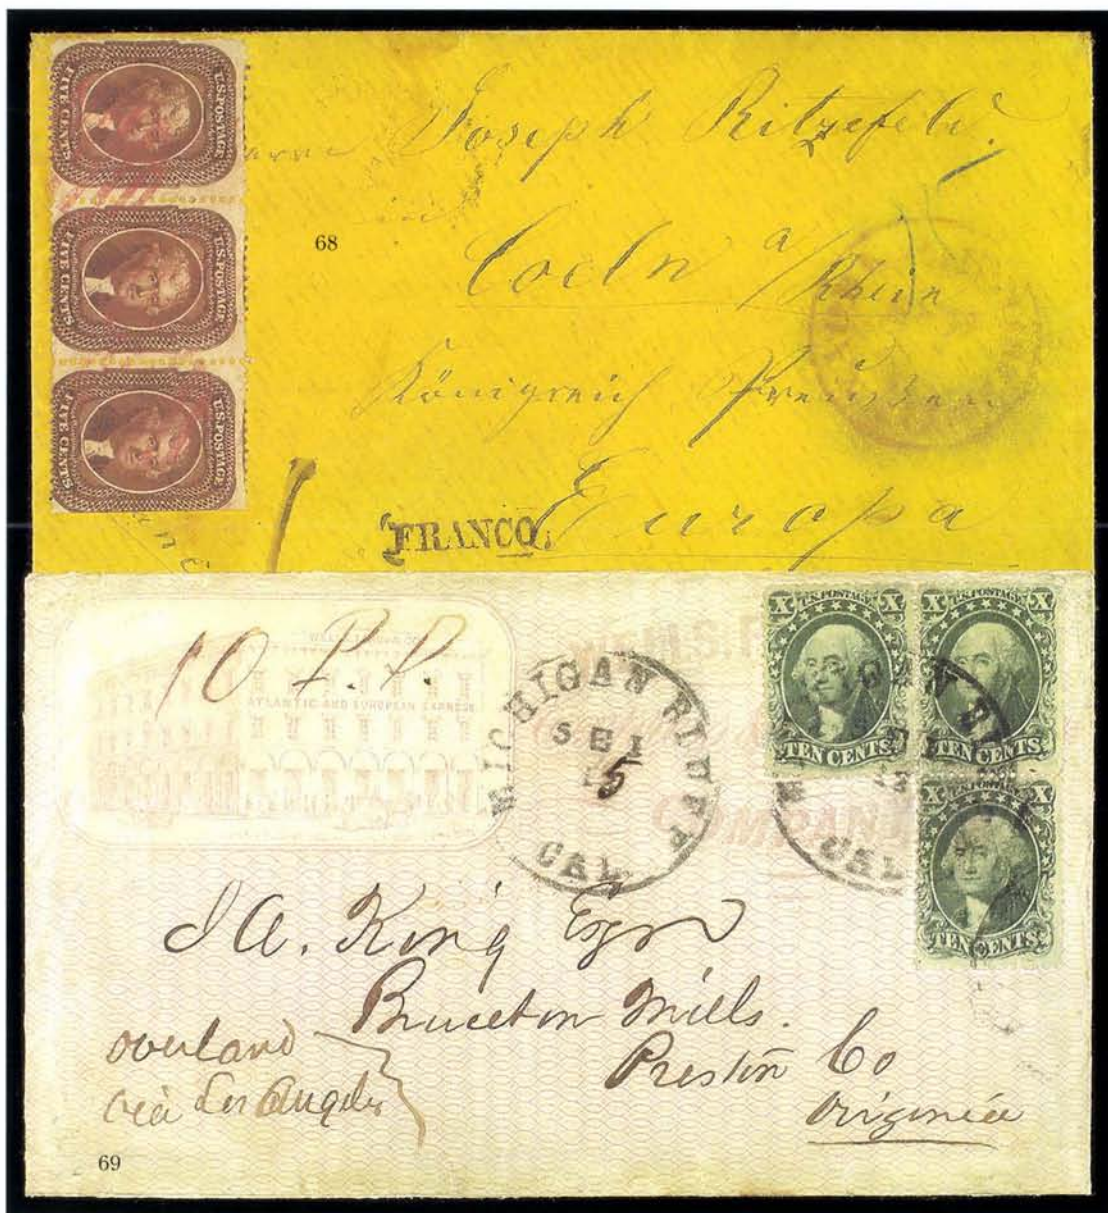 U.S. POSTAGE
FIVE CENTS
U.S. POSTAGE
FIVE CENTS
U.S. POSTAGE
FIVE CENTS
Joseph Ritzefeld.
in
68
Coeln a/Rhein
Königreich Preußen
Europa
FRANCO.
10 P.P.
ATLANTIC AND EUROPEAN EXPRESS
MICHIGAN BLUFF
5
CAL.
COMPANY
X U.S. POSTAGE X
TEN CENTS
X U.S. POSTAGE X
TEN CENTS
X X
TEN CENTS
CAL
J A. King Esqr
Bruceton Mills.
Preston Co
Virginia
overland
via Los Angeles
69